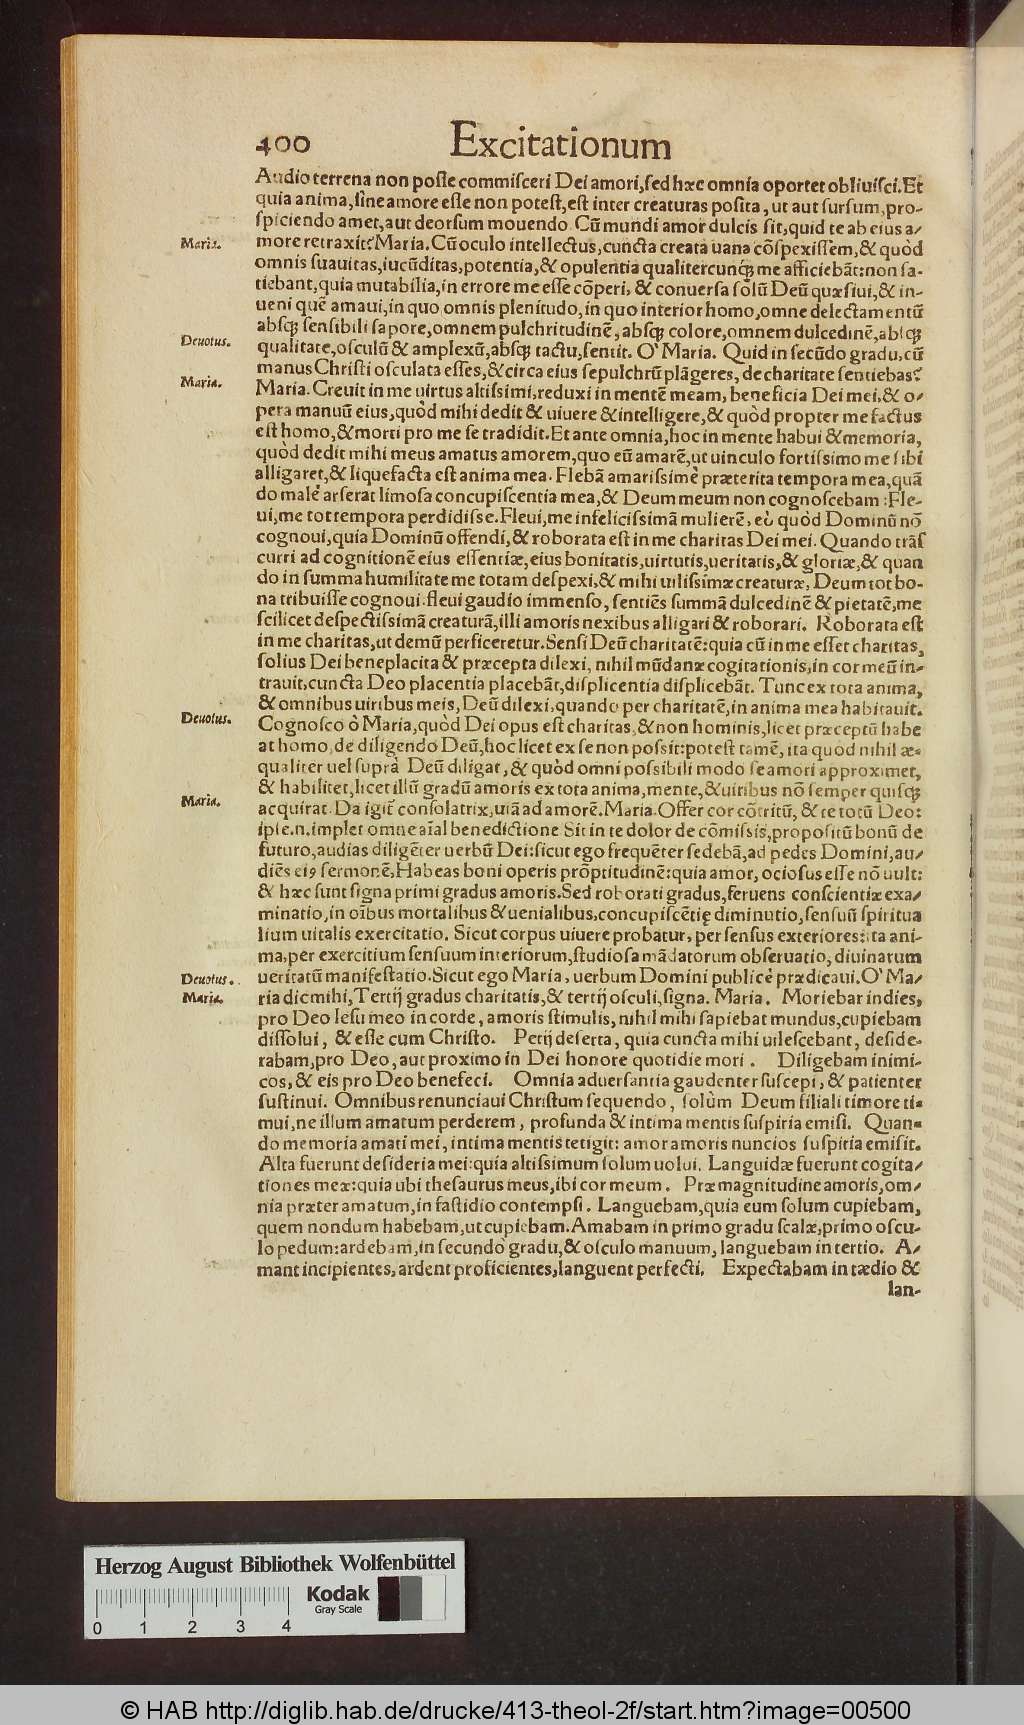 400 Excitationum
Audio terrena non posse commisceri Dei amori, sed hæc omnia oportet obliuisci. Et
quia anima, sine amore esse non potest, est inter creaturas posita, ut aut sursum, pro-
spiciendo amet, aut deorsum mouendo. Cũ mundi amor dulcis sit, quid te ab eius a-
Maria. more retraxit? Maria. Cũ oculo intellectus, cuncta creata uana cõspexissem, & quòd
omnis suauitas, iucũditas, potentia, & opulentia qualitercunq́ꝫ me afficiebãt: non sa-
tiebant, quia mutabilia, in errore me esse cõperi, & conuersa solũ Deũ quæsiui, & in-
ueni quẽ amaui, in quo omnis plenitudo, in quo interior homo, omne delectamentũ
absqꝫ sensibili sapore, omnem pulchritudinẽ, absqꝫ colore, omnem dulcedinẽ, absqꝫ
Deuotus. qualitate, osculũ & amplexũ, absqꝫ tactu, sentit. O' Maria. Quid in secũdo gradu, cũ
manus Christi osculata esses, & circa eius sepulchrũ plãgeres, de charitate sentiebas?
Maria. Maria. Creuit in me uirtus altissimi, reduxi in mentẽ meam, beneficia Dei mei, & o-
pera manuũ eius, quòd mihi dedit & uiuere & intelligere, & quòd propter me factus
est homo, & morti pro me se tradidit. Et ante omnia, hoc in mente habui & memoria,
quòd dedit mihi meus amatus amorem, quo eũ amarẽ, ut uinculo fortissimo me sibi
alligaret, & liquefacta est anima mea. Flebã amarissimè præterita tempora mea, quã
do malè arserat limosa concupiscentia mea, & Deum meum non cognoscebam: Fle-
ui, me tot tempora perdidisse. Fleui, me infelicissimã mulierẽ, eò quòd Dominũ nõ
cognoui, quia Dominũ offendi, & roborata est in me charitas Dei mei. Quando trãs
curri ad cognitionẽ eius essentiæ, eius bonitatis, uirtutis, ueritatis, & gloriæ, & quan
do in summa humilitate me totam despexi, & mihi uilissimæ creaturæ, Deum tot bo-
na tribuisse cognoui. fleui gaudio immenso, sentiẽs summã dulcedinẽ & pietatẽ, me
scilicet despectissimã creaturã, illi amoris nexibus alligari & roborari. Roborata est
in me charitas, ut demũ perficeretur. Sensi Deũ charitatẽ: quia cũ in me esset charitas,
solius Dei beneplacita & præcepta dilexi, nihil mũdanæ cogitationis, in cor meũ in-
trauit, cuncta Deo placentia placebãt, displicentia displicebãt. Tunc ex tota anima,
& omnibus uiribus meis, Deũ dilexi, quando per charitatẽ, in anima mea habitauit.
Deuotus. Cognosco ò Maria, quòd Dei opus est charitas, & non hominis, licet præceptũ habe
at homo, de diligendo Deũ, hoc licet ex se non possit: potest tamẽ, ita quòd nihil æ-
qualiter uel suprà Deũ diligat, & quòd omni possibili modo se amori approximet,
& habilitet, licet illũ gradũ amoris ex tota anima, mente, & uiribus nõ semper quisqꝫ
Maria. acquirat. Da igit̃ consolatrix, uiã ad amorẽ. Maria. Offer cor cõtritũ, & te totũ Deo:
ipse.n. implet omne aĩal benedictione Sit in te dolor de cõmissis, propositũ bonũ de
futuro, audias diligẽter uerbũ Dei: sicut ego frequẽter sedebã, ad pedes Domini, au-
diẽs ei⁹ sermonẽ, Habeas boni operis prõptitudinẽ: quia amor, ociosus esse nõ uult:
& hæc sunt signa primi gradus amoris. Sed roborati gradus, feruens conscientiæ exa-
minatio, in oĩbus mortalibus & uenialibus, concupiscẽtię diminutio, sensuũ spiritua
lium uitalis exercitatio. Sicut corpus uiuere probatur, per sensus exteriores: ita ani-
ma, per exercitium sensuum interiorum, studiosa mãdatorum obseruatio, diuinarum
Deuotus. ueritatũ manifestatio. Sicut ego Maria, uerbum Domini publicè prædicaui. O' Ma-
Maria. ria dic mihi, Tertij gradus charitatis, & tertij osculi, signa. Maria. Moriebar indies,
pro Deo Iesu meo in corde, amoris stimulis, nihil mihi sapiebat mundus, cupiebam
dissolui, & esse cum Christo. Petij deserta, quia cuncta mihi uilescebant, deside-
rabam, pro Deo, aut proximo in Dei honore quotidie mori. Diligebam inimi-
cos, & eis pro Deo benefeci. Omnia aduersantia gaudenter suscepi, & patienter
sustinui. Omnibus renunciaui Christum sequendo, solùm Deum filiali timore ti-
mui, ne illum amatum perderem, profunda & intima mentis suspiria emisi. Quan-
do memoria amati mei, intima mentis tetigit: amor amoris nuncios suspiria emisit.
Alta fuerunt desideria mei: quia altissimum solum uolui. Languidæ fuerunt cogita-
tiones meæ: quia ubi thesaurus meus, ibi cor meum. Præ magnitudine amoris, om-
nia præter amatum, in fastidio contempsi. Languebam, quia eum solum cupiebam,
quem nondum habebam, ut cupiebam. Amabam in primo gradu scalæ, primo oscu-
lo pedum: ardebam, in secundò gradu, & osculo manuum, languebam in tertio. A-
mant incipientes, ardent proficientes, languent perfecti. Expectabam in tædio &
lan-
Herzog August Bibliothek Wolfenbüttel
Kodak
Gray Scale
0 1 2 3 4
© HAB http://diglib.hab.de/drucke/413-theol-2f/start.htm?image=00500